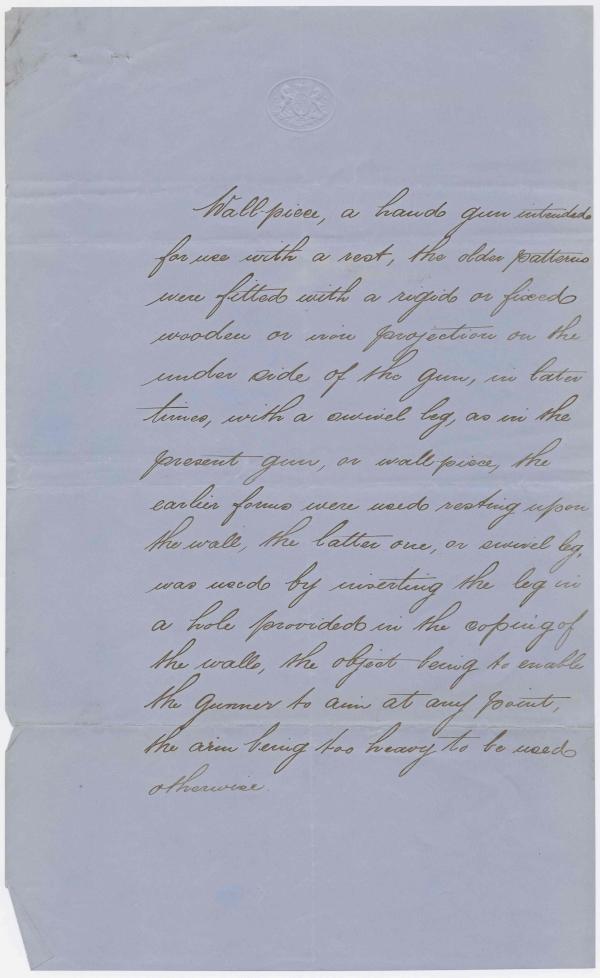 Wall-piece, a hand gun intended
for use with a rest, the older patterns
were fitted with a rigid or fixed
wooden or iron projection on the
under side of the gun, in later
times, with a swivel leg, as in the
present gun, or wall-piece, the
earlier forms were used resting upon
the wall, the latter one, or swivel leg,
was used by inserting the leg in
a hole provided in the coping of
the walls, the object being to enable
the gunner to aim at any point,
the arm being too heavy to be used
otherwise.